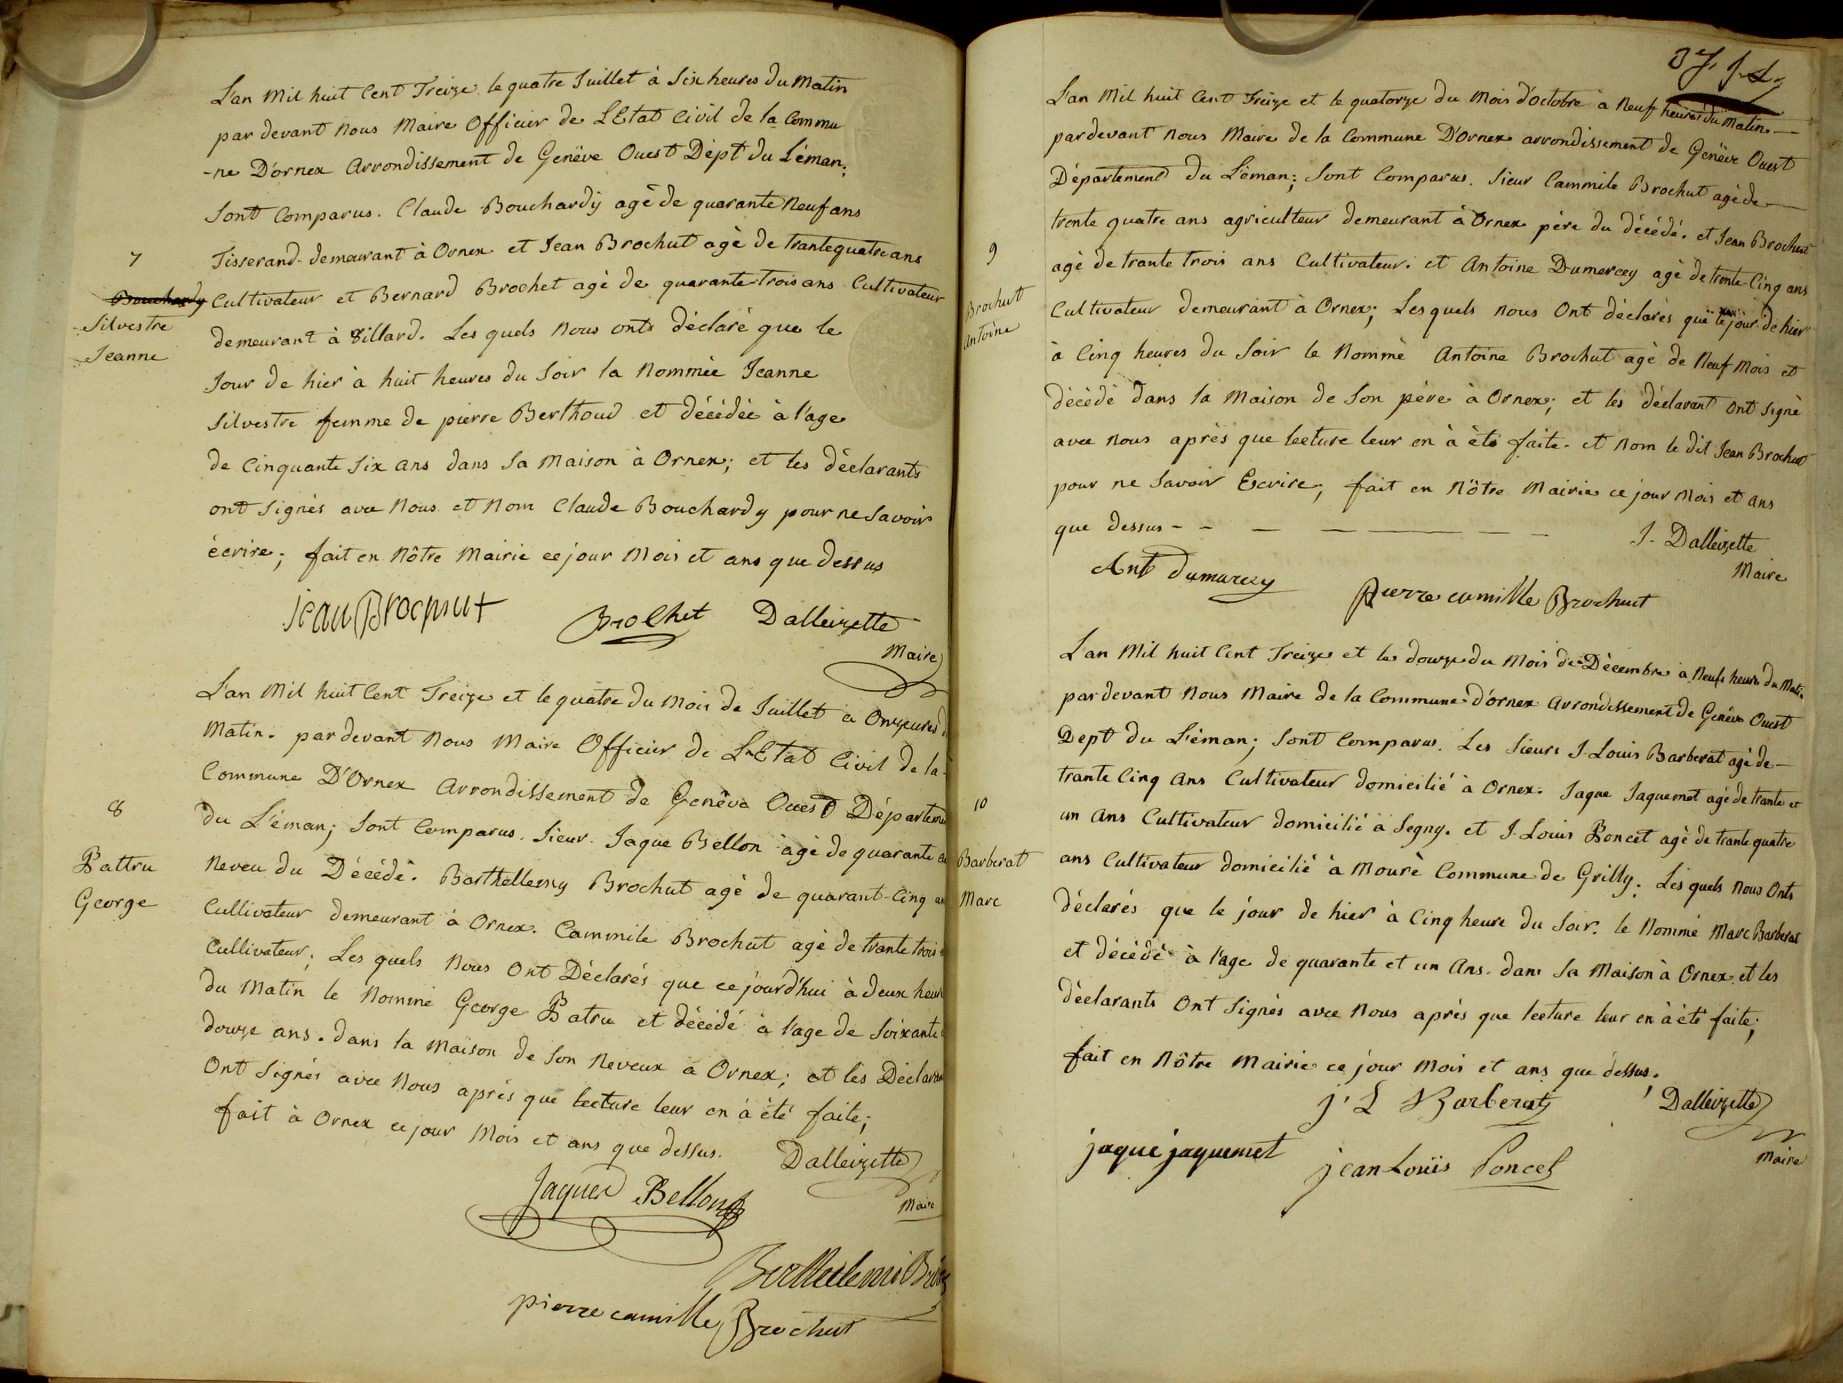 L'an Mil huit Cent Treize le quatre Juillet à Six heures du Matin
par devant Nous Maire Officier de L'Etat Civil de la Commu
-ne D'ornex Arrondissement de Genève Ouest Dépt du Léman;
Sont Comparus. Claude Bouchardy agè de quarante Neuf ans
7
Tisserand demeurant à Ornex et Jean Brochut agè de trante quatre ans
Bouchardy
Cultivateur et Bernard Brochet agè de quarante-trois ans Cultivateur
Silvestre
Jeanne
demeurant à villard. Les quels Nous onts déclaré que le
Jour de hier à huit heures du Soir la Nommée Jeanne
Silvestre femme de pierre Berthoud et décédée à l'age
de Cinquante Six ans dans Sa Maison à Ornex; et les déclarants
ont Signés avec Nous et Nom Claude Bouchardy pour ne Savoir
écrire; fait en Nôtre Mairie ce jour Mois et ans que dessus
Jean Brochut
Brolhet
Dalleizette
Maire
L'an Mil huit Cent Treize et le quatre du Mois de Juillet a Onzeures d
Matin. par devant Nous Maire Officier de L'Etat Civil de la
Commune D'Ornex Arrondissement de Genêve Ouest Départem
8
du L'éman; Sont Comparus. Sieur Jaque Bellon âgè de quarante a
Battru
George
Neveu du Décédé. Barthellemy Brochut agè de quarant-Cinq an
Cultivateur demeurant à Ornex. Cammile Brochut agè de trante trois
Cultivateur; Les quels Nous Ont Déclarés que ce jourd'hui à deux heur
du Matin le Nommé George Batru et décédé à l'age de Soixante
douze ans. dans la Maison de Son Neveux a Ornex; et les Déclaran
Ont Signés avec Nous après que lecture leur en à été faite;
fait à Ornex ce jour Mois et ans que dessus.
Dalleizette
Maire
Jaques Bellon
Berthelemi Bro
pierre camille Brochut
37.
L'an Mil huit Cent Treize et le quatorze du Mois d'Octobre à Neuf heures du Matin
par devant Nous Maire de la Commune D'Ornex arrondissement de Genève Ouest
Département du L'éman; Sont Comparus. Sieur Cammile Brochut agè de
trente quatre ans agriculteur demeurant à Ornex père du décédé. et Jean Brochut
9
Brochut
Antoine
agè de trante trois ans Cultivateur. et Antoine Dumarcey agè de trente-Cinq ans
Cultivateur demeurant à Ornex; Les quels Nous Ont déclarés que le jour de hier
à Cinq heures du Soir le Nommè Antoine Brochut agè de Neuf Mois et
décédé dans la Maison de Son père à Ornex; et les déclarant Ont Signé
avec Nous après que lecture leur en à été faite. et Nom le dit Jean Brochut
pour ne Savoir Escrire; fait en Nôtre Mairie ce jour Mois et ans
que dessus - - — — —
J. Dalleizette
Maire
Ant dumarcey
pierre camille Brochut
L'an Mil huit Cent Treize et le douze du Mois de Décembre à Neufs heures du Mati.
par devant Nous Maire de la Commune d'ornex Arrondissement de Genève Ouest
Dept du L'éman; Sont Comparus. Les Sieurs J. Louis Barberat agè de
trante Cinq Ans Cultivateur domicilié à Ornex. Jaque Jaquemet agè de trante et
10
Barberat
Marc
un Ans Cultivateur domicilié à Segny. et J. Louis Poncet agè de trante quatre
ans Cultivateur domicilié à Mourè Commune de Grilly. Les quels Nous Onts
déclarés que le jour de hier à Cinq heure du Soir. le Nommé Marc Barberat
et décédé à l'age de quarante et un Ans. dans Sa Maison à Ornex et les
déclarants Ont Signés avec Nous après que lecture leur en à été faite;
fait en Nôtre Mairie ce jour Mois et ans que dessus.
J. L Barberat
Dalleizette
Maire
jaque jaquemet
jean Louis Poncet